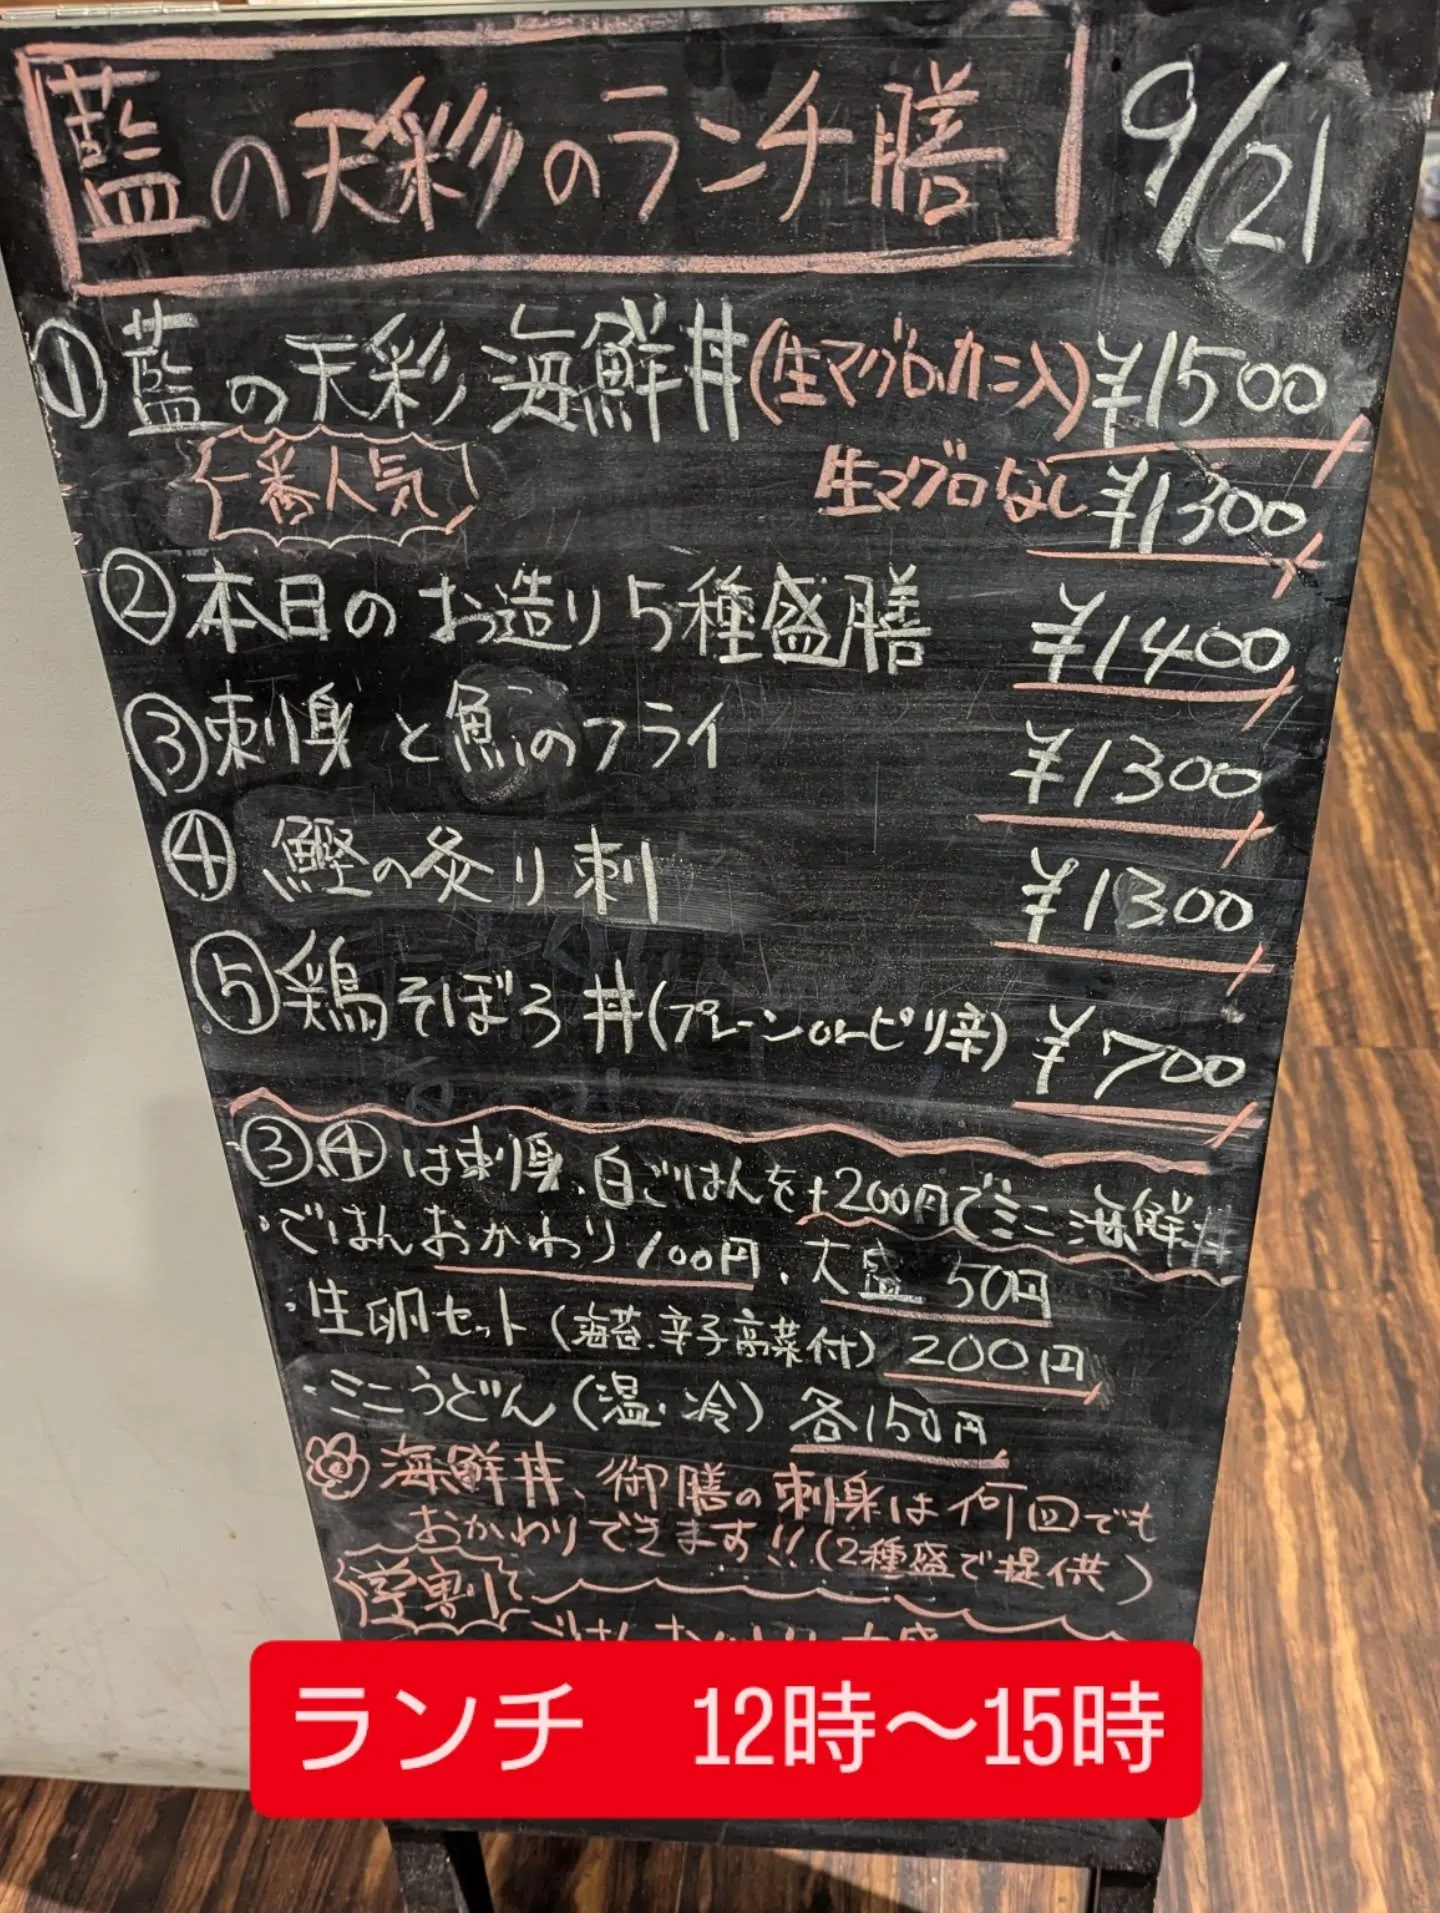 藍の天彩のランチ膳 9/21
①藍の天彩海鮮丼(生マグロ.カニ入)¥1500
一番人気 生マグロなし¥1300
②本日のお造り5種盛膳 ¥1400
③刺身と魚のフライ ¥1300
④鰹の炙り刺 ¥1300
⑤鶏そぼろ丼(プレーンorピリ辛) ¥700
③.④は刺身.白ごはんを+200円でミニ海鮮丼
・ごはんおかわり100円、大盛50円
・生卵セット(海苔.辛子高菜付)200円
・ミニうどん(温.冷)各150円
海鮮丼、御膳の刺身は何回でも
おかわりできます!!(2種盛で提供)
学割
ランチ 12時〜15時